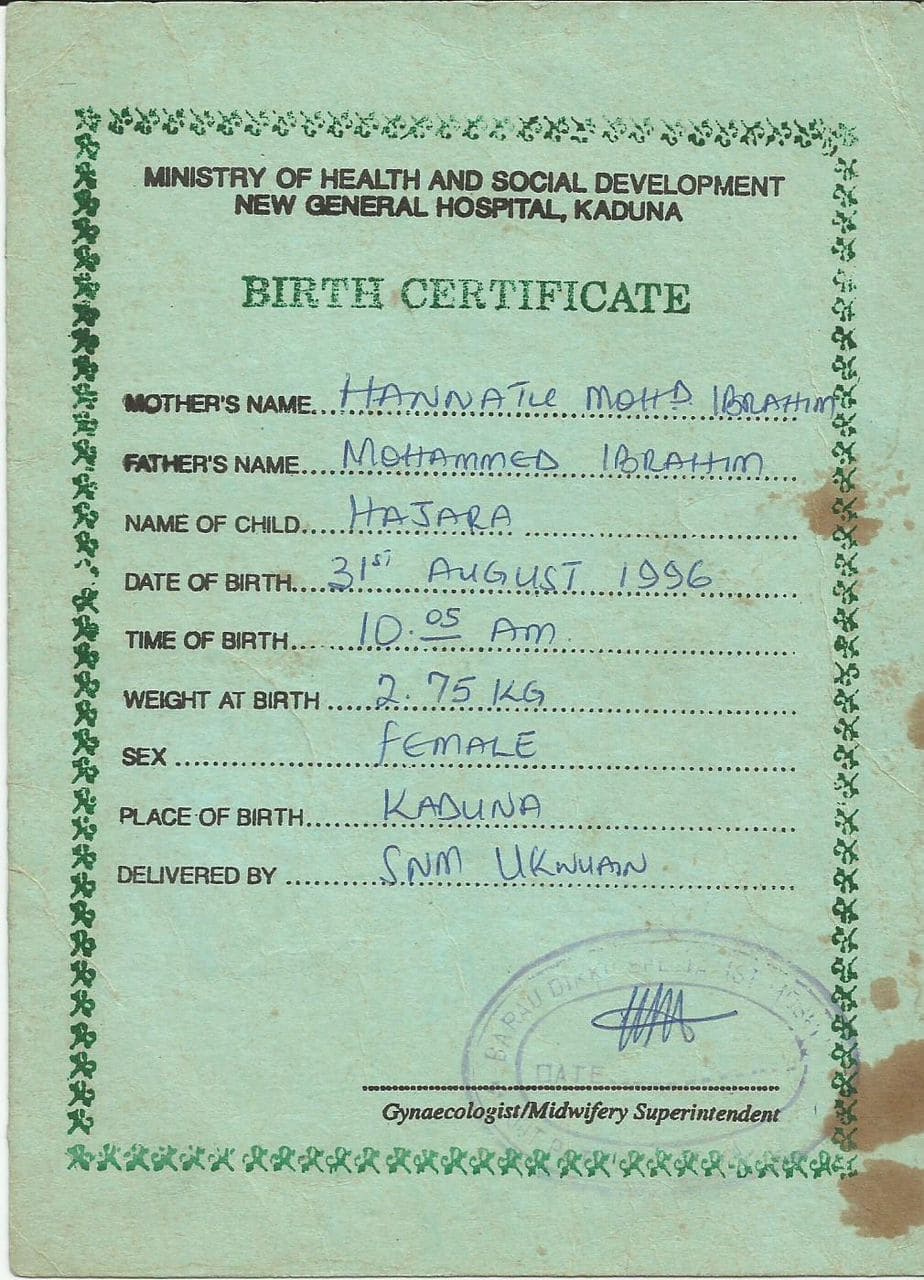 MINISTRY OF HEALTH AND SOCIAL DEVELOPMENT
NEW GENERAL HOSPITAL, KADUNA
BIRTH CERTIFICATE
MOTHER'S NAME HANNATU MOHD IBRAHIM
FATHER'S NAME MOHAMMED IBRAHIM
NAME OF CHILD HAJARA
DATE OF BIRTH 31ST AUGUST 1996
TIME OF BIRTH 10.05 AM
WEIGHT AT BIRTH 2.75 KG
SEX FEMALE
PLACE OF BIRTH KADUNA
DELIVERED BY SNM
BARAU DIKKO SPECIALIST
DATE
Gynaecologist/Midwifery Superintendent